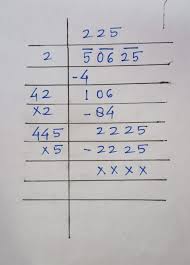 2 2 5
2 5 06 25
-4
42 1 06
×2 - 84
445 2 2 2 5
×5 - 2 2 2 5
× × × ×